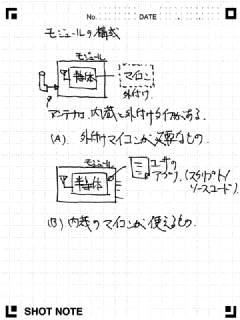 No.
DATE
モジュールの構成
モジュール
半導体
マイコン
外付け
アンテナは、内蔵と外付けタイプがある。
(A) 外付けマイコンが必要なもの.
モジュール
半導体
ユーザの
アプリ.(スクリプト/
ソースコード)
(B) 内蔵のマイコンが使えるもの.
SHOT NOTE